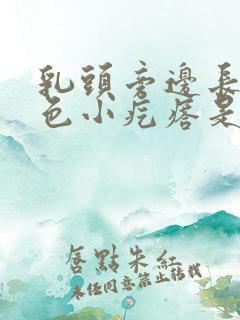 乳頭旁邊長
色小疙瘩是
唇點朱紅
未經同意禁止轉載